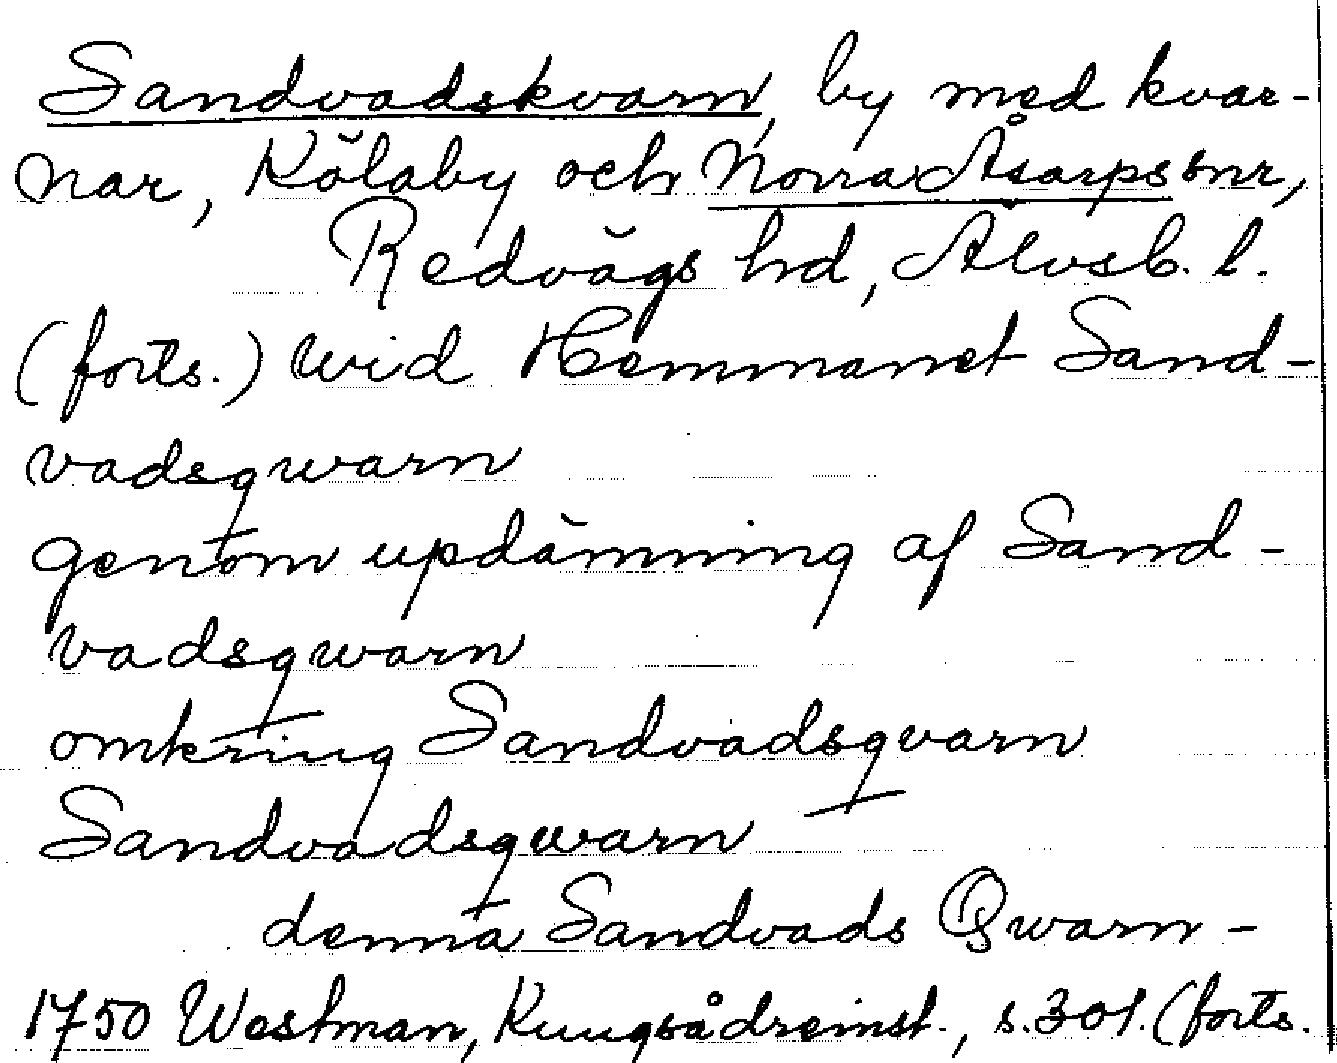 Sandvadskvarn, by med kvar-
nar, Kölaby och Norra Åsarps snr,
Redvägs hd, Älvsb. l.
(forts.) wid Hemmanet Sand-
vadsqwarn
genom updämning af Sand-
vadsqwarn
omkring Sandvadsqvarn
Sandvadsqwarn
denna Sandvads Qwarn-
1750 Westman, Kungsådreinst., s. 301. (forts.